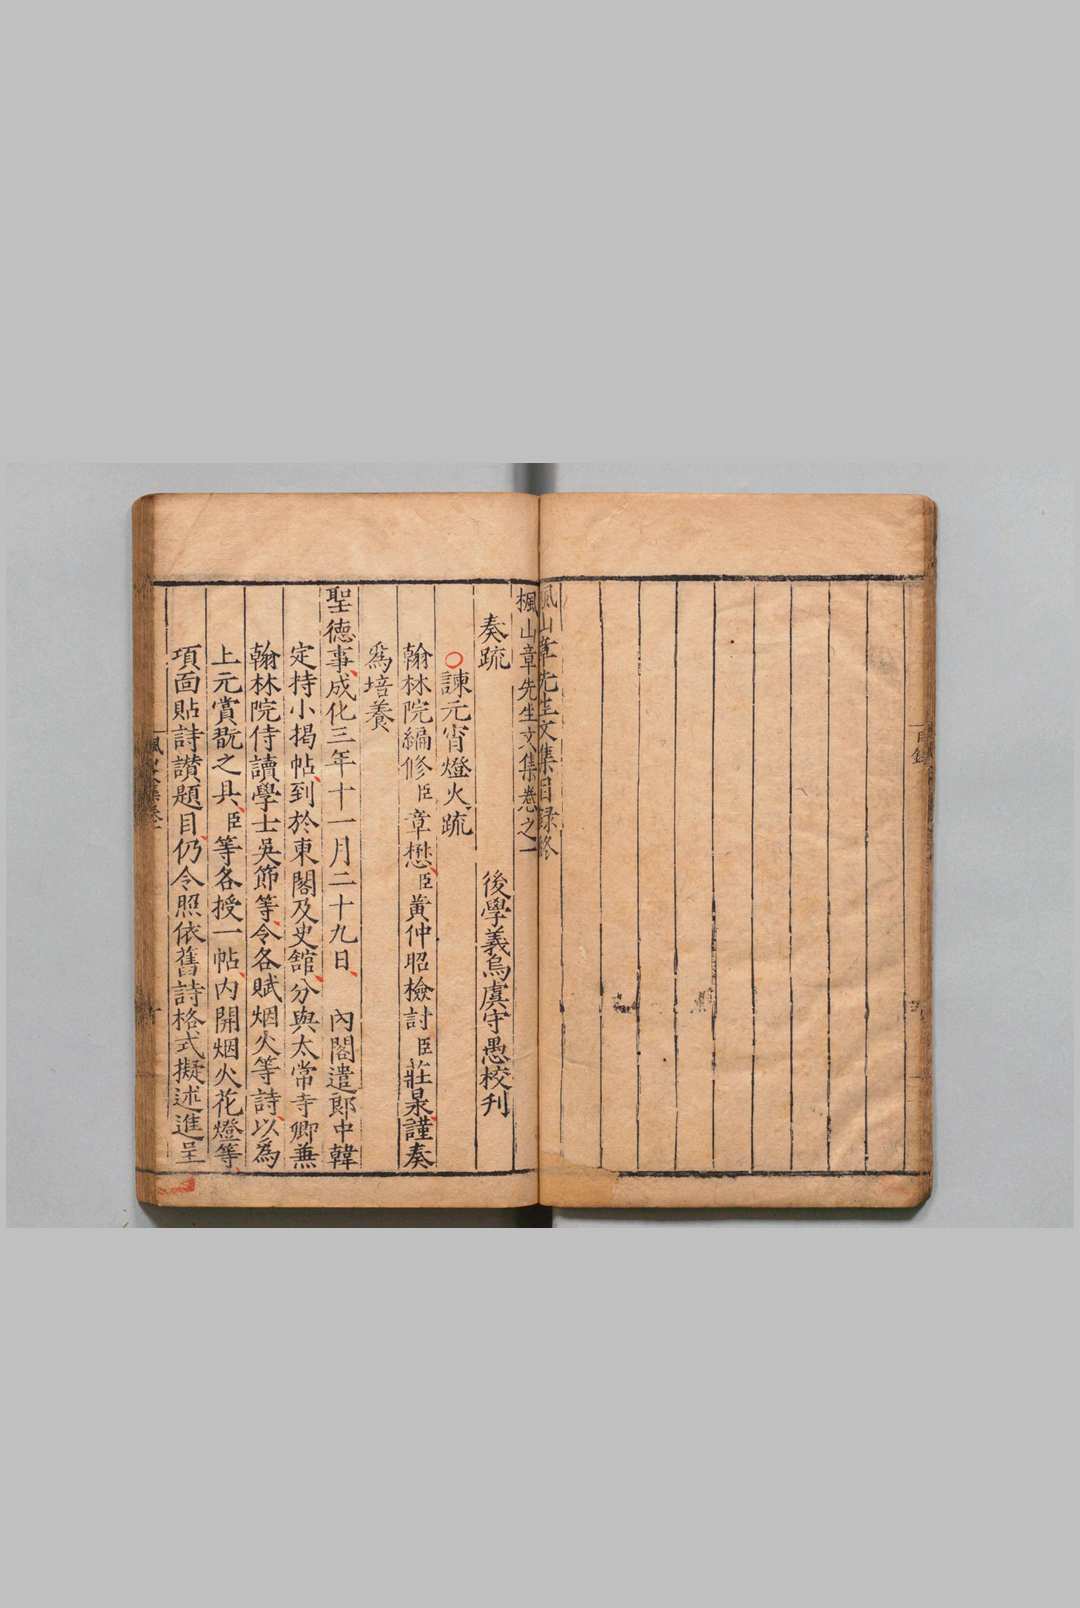 楓山章先生文集目録終
目録
楓山章先生文集卷之一
奏疏
後學義烏虞守愚校刋
諫元宵燈火疏
翰林院編修臣章懋臣黄仲昭檢討臣莊㫤謹奏
爲培養
聖德事成化三年十一月二十九日 内閣遣郎中韓
定持小揭帖到於東閣及史舘分與太常寺卿兼
翰林院侍讀學士吳節等令各賦烟火等詩以爲
上元賞翫之具臣等各授一帖内開烟火花燈等
項面貼詩讃題目仍令照依舊詩格式擬述進呈